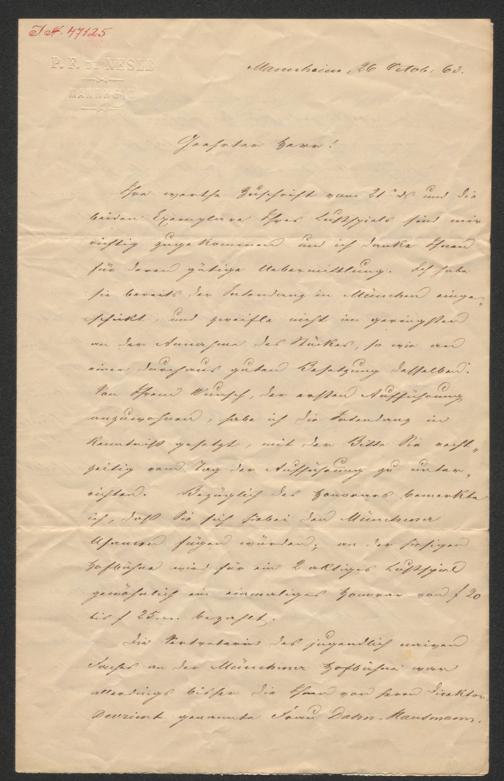 J.N. 47125
P. F. DE NESLE
MANNHEIM
Mannheim, 26 Octob. 63.
Geehrter Herr!
Ihre werthe Zuschrift vom 21ten ds und die
beiden Exemplare Ihres Lustspiels sind mir
richtig zugekommen und ich danke Ihnen
für deren gütige Uebermittlung. Ich habe
sie bereits der Intendanz in München einge-
schickt, und zweifle nicht im geringsten
an der Annahme des Stückes, so wie an
einer durchaus guten Besetzung desselben.
Von Ihrem Wunsch, der ersten Aufführung
anzuwohnen, habe ich die Intendanz in
Kenntniß gesetzt, mit der Bitte Sie recht-
zeitig vom Tag der Aufführung zu unter-
richten. Bezüglich des Honorars bemerkte
ich, daß Sie sich hiebei den Münchner
Usancen fügen würden; an der hiesigen
Hofbühne wird für ein 2 aktiges Lustspiel
gewöhnlich ein einmaliges Honorar von f 20
bis f 25 bezahlt.
Die Vertreterin des jugendlich naiven
Faches an der Münchner Hofbühne war
allerdings bisher die Ihnen von Herrn Direktor
Devrient genannte Frau Dahn-Hausmann.